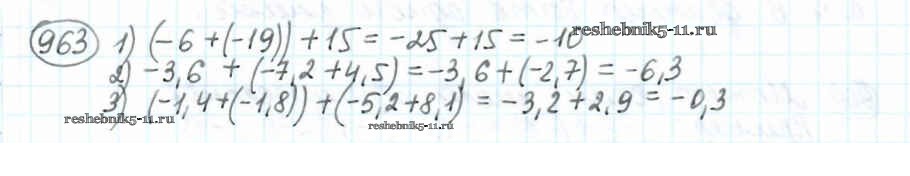 963 1) (-6 + (-19)) + 15 = -25 + 15 = -10
reshebnik5-11.ru
2) -3,6 + (-7,2 + 4,5) = -3,6 + (-2,7) = -6,3
3) (-1,4 + (-1,8)) + (-5,2 + 8,1) = -3,2 + 2,9 = -0,3
reshebnik5-11.ru
reshebnik5-11.ru